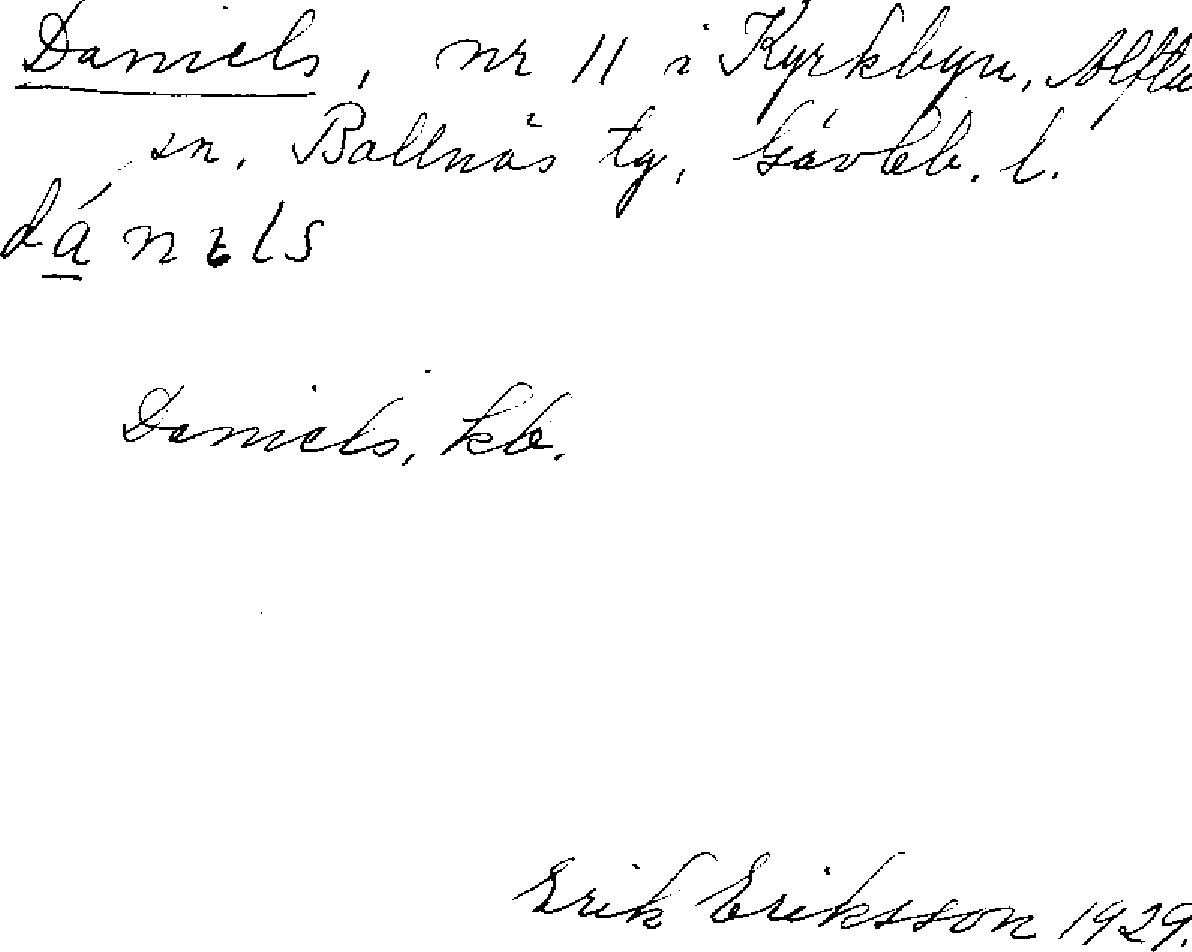 Daniels, nr 11 i Kyrkbyn, Alfta
sn. Bollnäs tg, Gävleb. l.
dánɩls
Daniels, kb.
Erik Eriksson 1929.